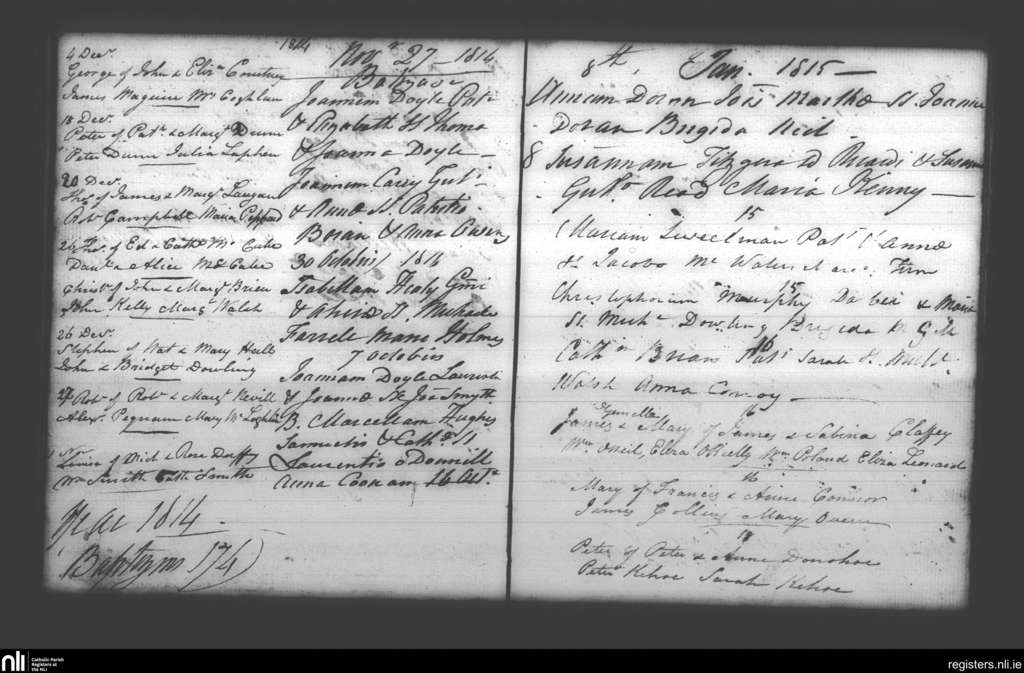 4 Decr.
George of John & Elizth Courtney
James Maguire Mrs Coghlan
18 Decr.
Peter of Patk. & Margt Dunn
Peter Dunn Julia Laphen
20 Decr.
Thos. of James & Mary
Robt Campbell Maria
26 of Ed & Cathe Mc Cabe
Danl & Alice Mc Cabe
Christr of John & Margt Brien
John Kelly Margt Walsh
26 Decr.
Stephen of Nat & Mary Hall
John & Bridget Dowling
27 Robt of Robt & Margt Nevill
Alexr. Pegnam Mary Mc Loghlin
Louisa of Dick & Rose Duffy
Wm Smith Cath Smith
Year 1814
Baptizms 174
1814
Novr 27 - 1814
Joannem Doyle Pat
& Elizabeth St Thoma
& Joanna Doyle
Joannem Carey Gul
& Anna St. Patritio
Boran & Mra
30 Octobris 1814
Isabellam Healy
& St. Michaele
Farrell Maria Holmes
7 Octobris
Joannam Doyle Laurenti
& Joanna St Jos Smyth
B. Marcellam Hughes
Samuelis & Cath St
Laurentio o Donnill
Anna 16 Oct
8th, Jan. 1815
Doran Jois Martha St. Joanne
Doran Brigida Neil
8 Susannam Fitzgerald Ricardi & Susanna
Gulmo Read Maria Kenny
15
Mariam Pat & Anna
St Jacobo Mc
15
Christophorum Murphy & Maria
St. Mich Dowling Brigida
16
Cath Brian Pat Sarah St.
Walsh Anna Conroy
Gemelli 16
James & Mary of James & Sabina Claffey
Wm Oneil, Eliza OKielly Wm Poland Eliza Leonard
16
Mary of Francis & Anne Connor
James Collins Mary Owens
17
Peter of Peter & Anne Donohoe
Peter Kehoe Sarah Kehoe
nli
Catholic Parish
Registers at
the NLI
registers.nli.ie